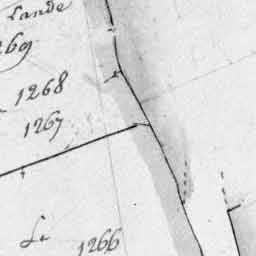 Lande
1269
1268
1267
Le
1266